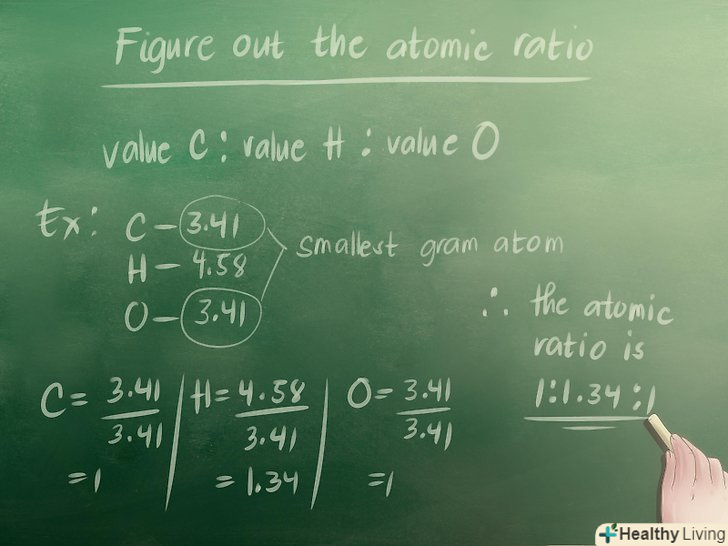 Figure out the atomic ratio
value C : value H : value O
Ex: C – 3.41
H – 4.58
O – 3.41
smallest gram atom
∴ the atomic
ratio is
1:1.34:1
C = 3.41/3.41
= 1
H = 4.58/3.41
= 1.34
O = 3.41/3.41
= 1
Healthy Living